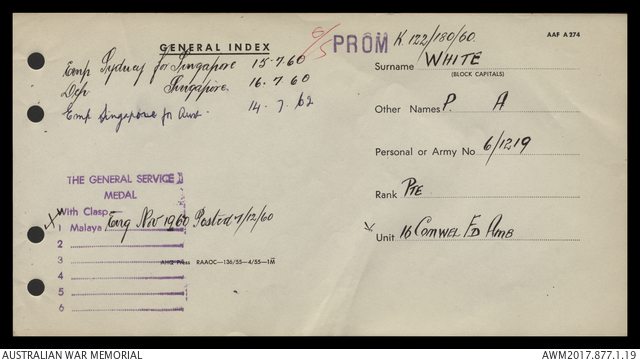 GENERAL INDEX
6/5
PROM
K.122/180/60
AAF A 274
Emp Sydney for Singapore 15.7.60
Dep Singapore. 16.7.60
Emp Singapore for Aust. 14.7.62
Surname WHITE
(BLOCK CAPITALS)
Other Names P. A
Personal or Army No 6/1219
Rank PTE
Unit 16 COMWEL FD AMB
THE GENERAL SERVICE
MEDAL
With Clasp
1 Malaya Eng Nov 1960 Posted 7/12/60
2
3
AHQ PRESS RAAOC—136/55—4/55—1M
4
5
6
AUSTRALIAN WAR MEMORIAL
AWM2017.877.1.19